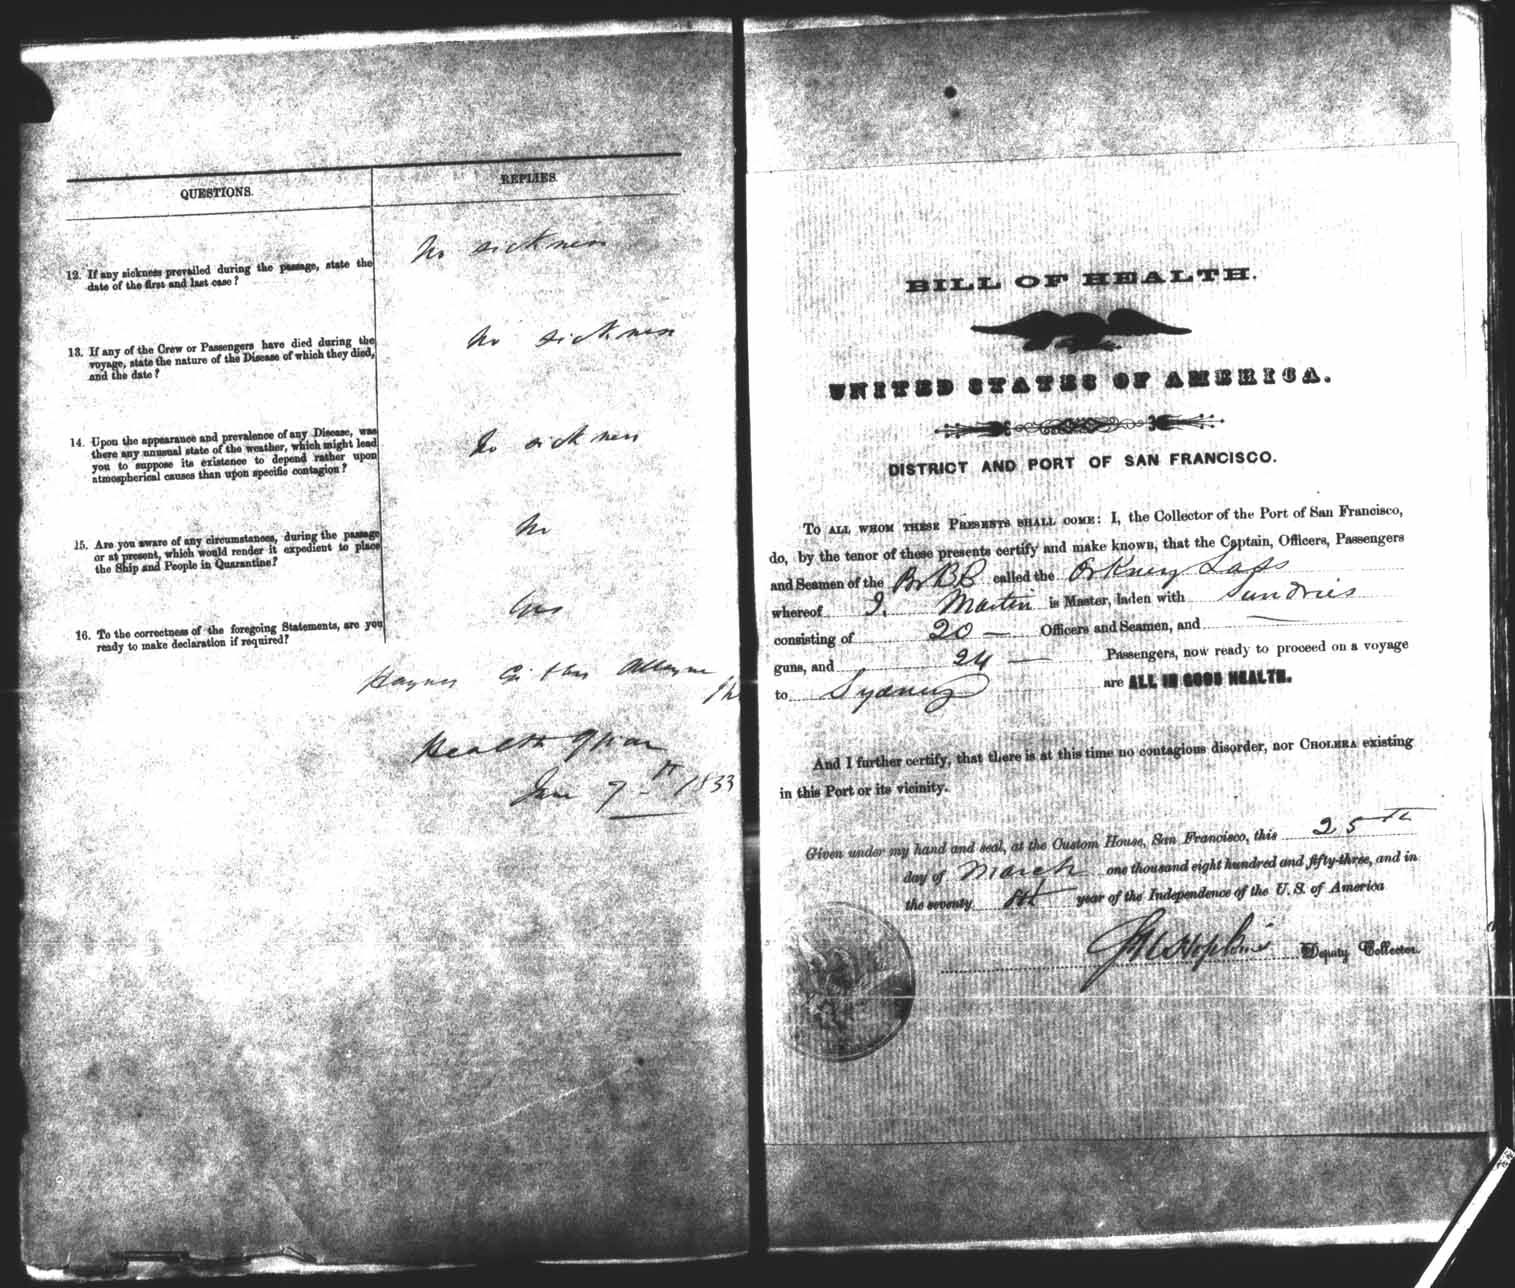 QUESTIONS.
REPLIES.
12. If any sickness prevailed during the passage, state the
date of the first and last case?
No sickness
13. If any of the Crew or Passengers have died during the
voyage, state the nature of the Disease of which they died,
and the date?
No sickness
14. Upon the appearance and prevalence of any Disease, was
there any unusual state of the weather, which might lead
you to suppose its existence to depend rather upon
atmospherical causes than upon specific contagion?
No sickness
15. Are you aware of any circumstances, during the passage
or at present, which would render it expedient to place
the Ship and People in Quarantine?
No
16. To the correctness of the foregoing Statements, are you
ready to make declaration if required?
Yes
Haynes Gibbes Alleyne
Health
June 9th 1853
BILL OF HEALTH.
UNITED STATES OF AMERICA.
DISTRICT AND PORT OF SAN FRANCISCO.
To all whom these Presents shall come: I, the Collector of the Port of San Francisco,
do, by the tenor of these presents certify and make known, that the Captain, Officers, Passengers
and Seamen of the Br called the Orkney Lass
whereof J. Martin is Master, laden with Sundries
consisting of 20 — Officers and Seamen, and —
guns, and 24 — Passengers, now ready to proceed on a voyage
to Sydney are ALL IN GOOD HEALTH.
And I further certify, that there is at this time no contagious disorder, nor Cholera existing
in this Port or its vicinity.
Given under my hand and seal, at the Custom House, San Francisco, this 25th
day of March one thousand eight hundred and fifty-three, and in
the seventy 8th year of the Independence of the U. S. of America
Hopkins Deputy Collector.